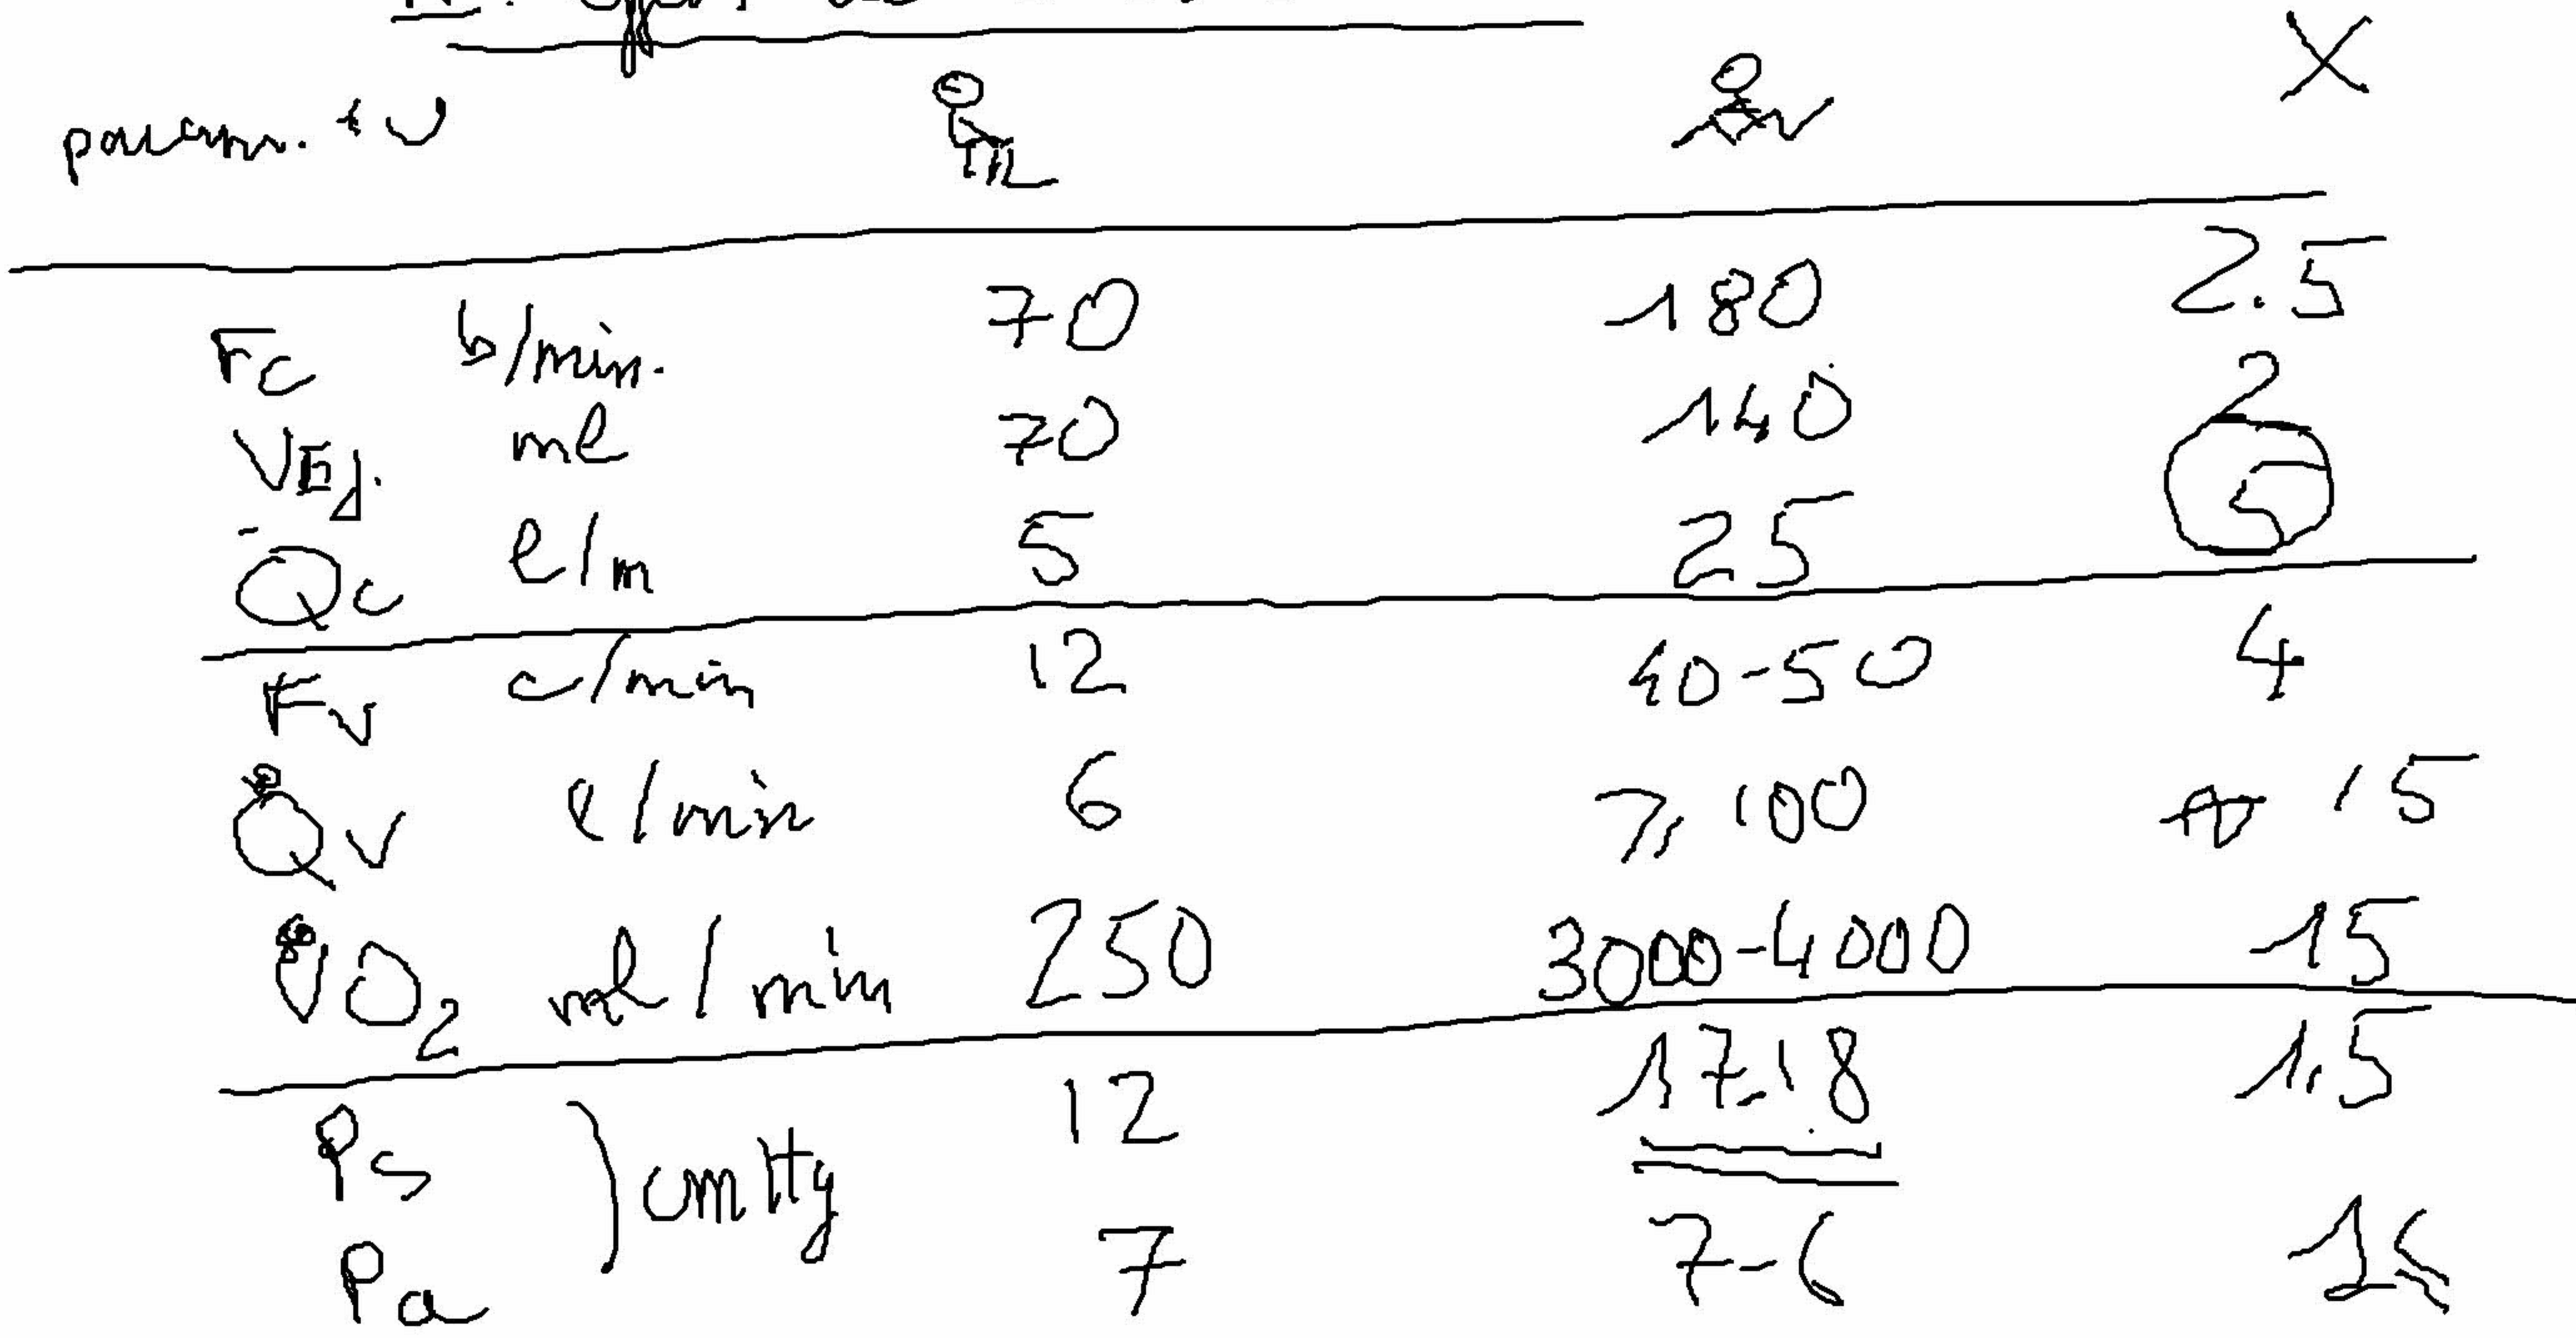 param. + U X
Fc b/min. 70 180 2.5
VEj. ml 70 140 2
Q̇c l/m 5 25 5
Fv c/min 12 40-50 4
Q̇v l/min 6 ⩾ 100 15
V̇O2 ml/min 250 3000-4000 15
Ps 12 17-18 1,5
cmHg
Pa 7 7-6